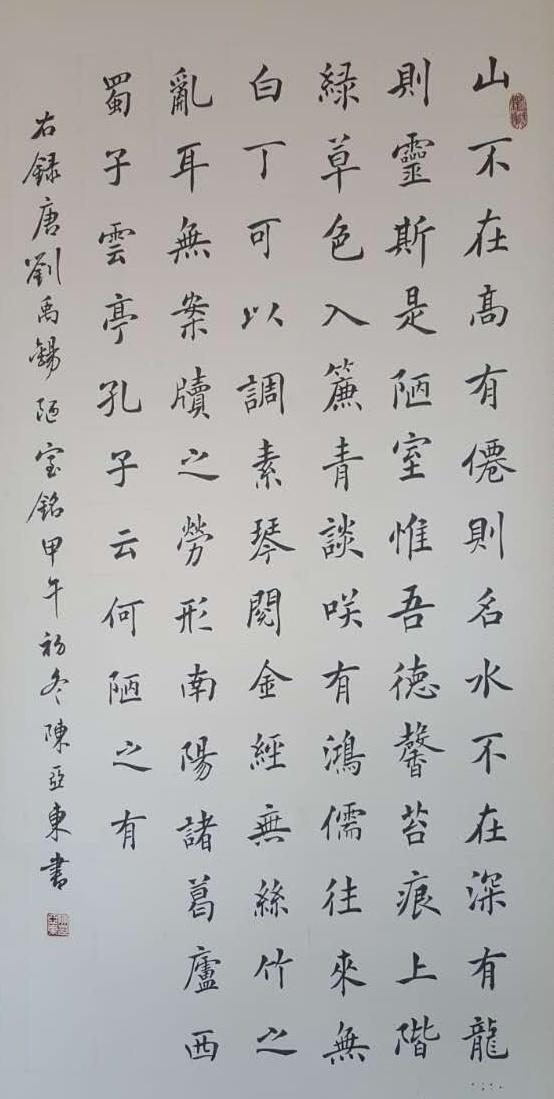 山不在髙有僊則名水不在深有龍
則靈斯是陋室惟吾德馨苔痕上階
緑草色入簾青談咲有鴻儒往來無
白丁可以調素琴閱金經無絲竹之
亂耳無案牘之勞形南陽諸葛廬西
蜀子雲亭孔子云何陋之有
右録唐劉禹錫陋室銘甲午初冬陳亞東書